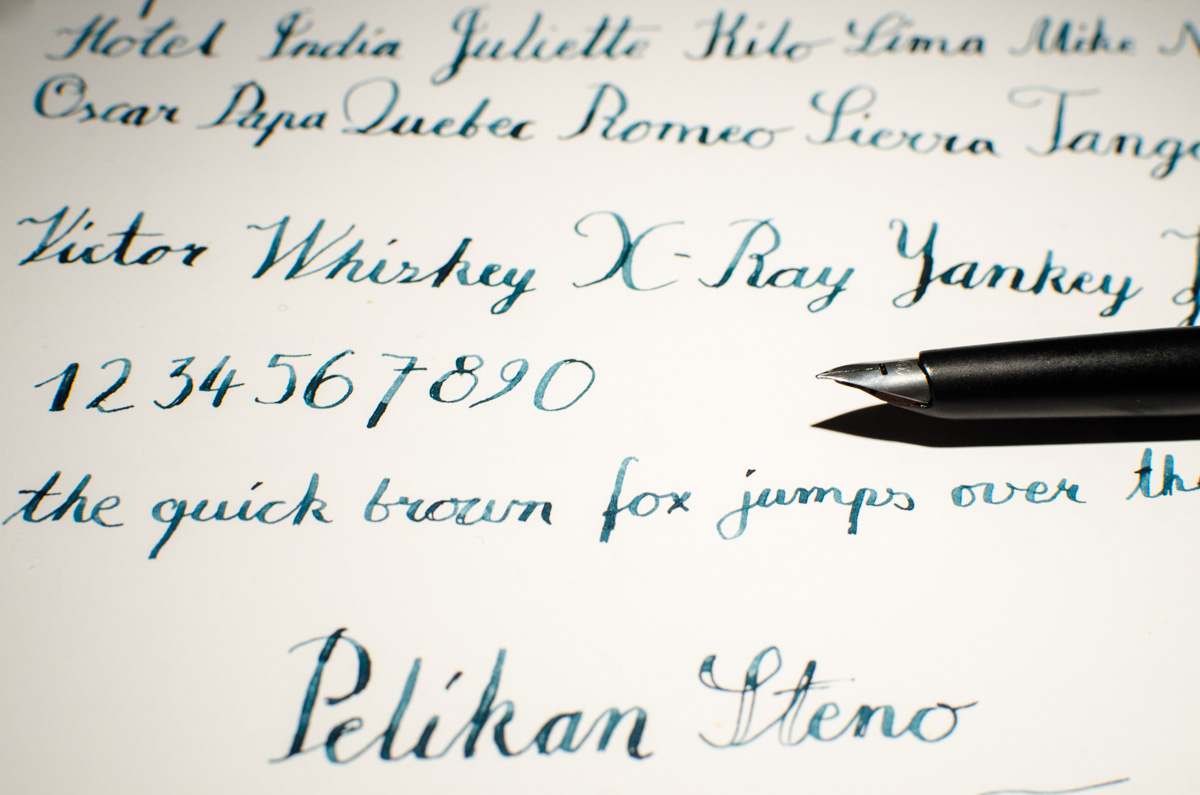 Hotel India Juliette Kilo Lima Mike
Oscar Papa Quebec Romeo Sierra Tango
Victor Whiskey X-Ray Yankey
1234567890
the quick brown fox jumps over the
Pelikan Steno